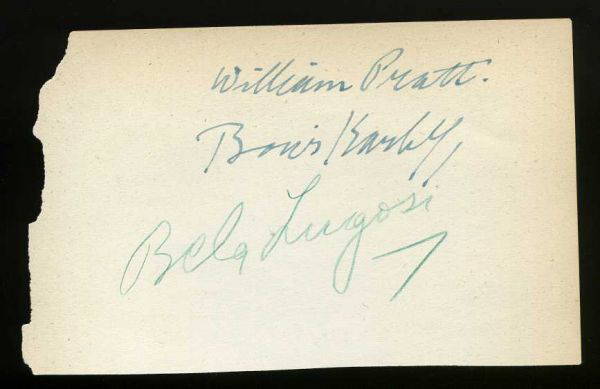 William Pratt.
Boris Karloff
Bela Lugosi